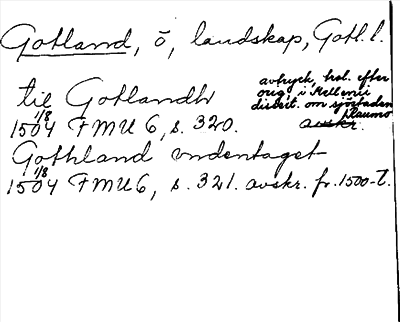 Gotland, ö, landskap, Gotl. l.
til Gotlandh
avtryck, trol. efter
orig. i Mellenii
dissert. om sjöstaden
1504 1/8 FMU 6, s. 320.
avskr.
Gothland vndentaget
1504 1/8 FMU 6, s. 321. avskr. fr. 1500-t.